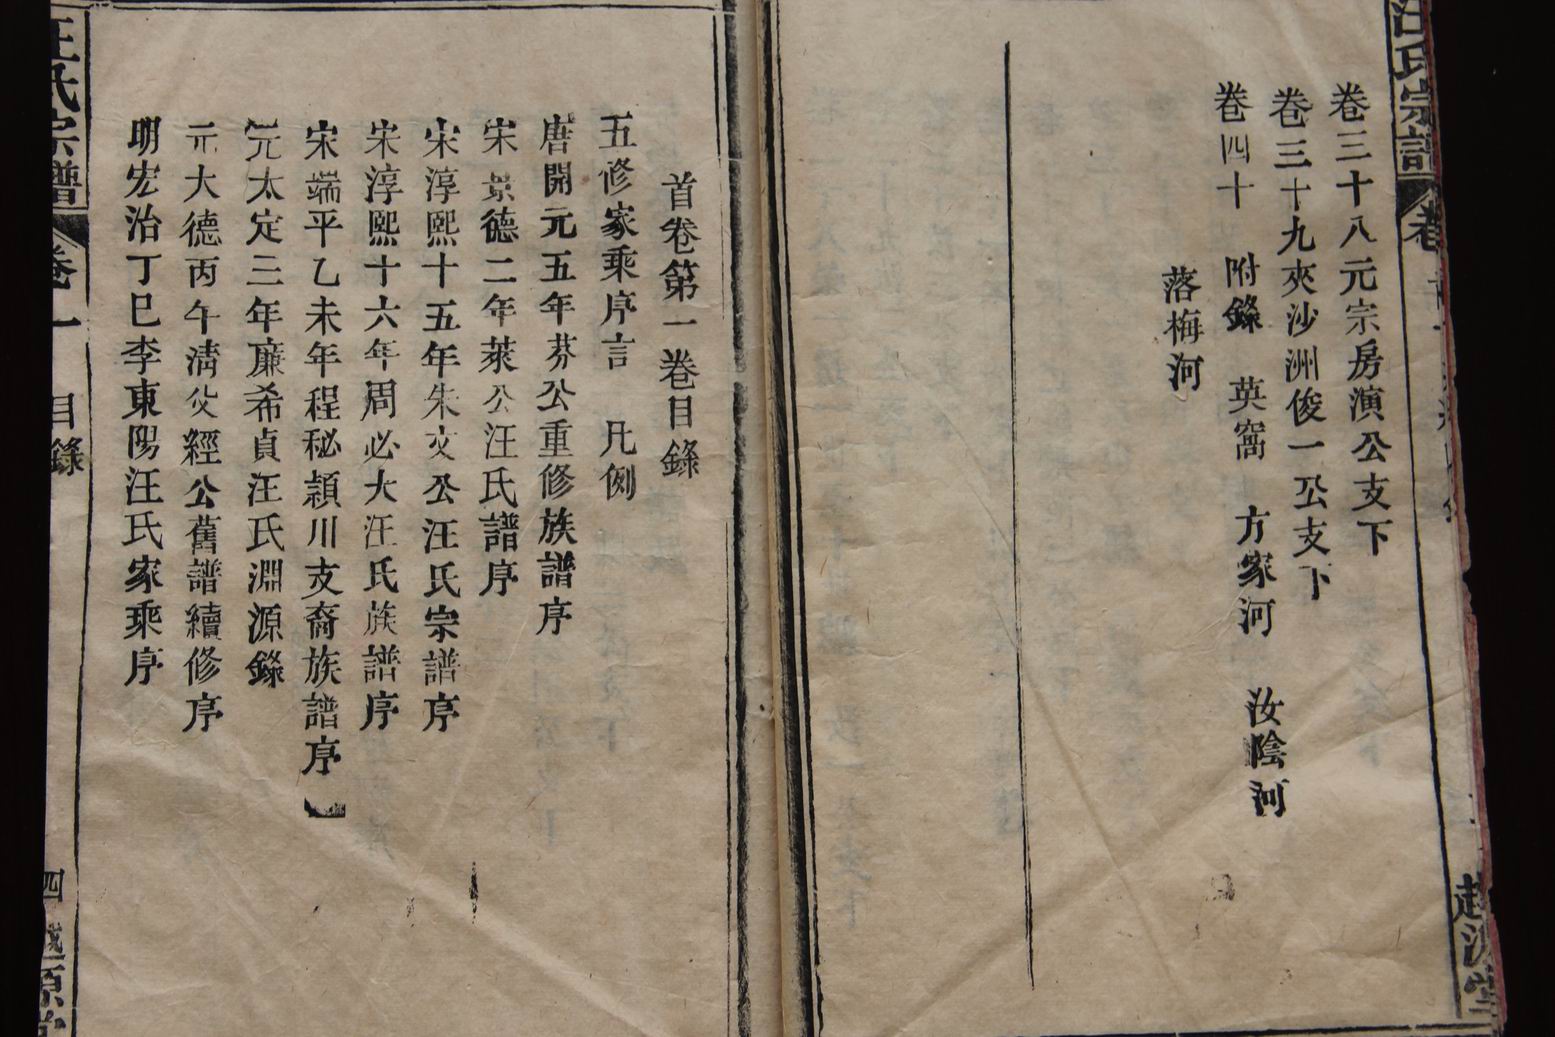 汪氏宗譜
卷三十八元宗房演公支下
卷三十九夾沙洲俊一公支下
卷四十 附錄 英窩 方家河 汝陰河
落梅河
首卷第一卷目錄
五修家乘序言 凡例
唐開元五年芬公重修族譜序
宋景德二年萊公汪氏譜序
宋淳熙十五年朱文公汪氏宗譜序
宋淳熙十六年周必大汪氏族譜序
宋端平乙未年程秘頴川支裔族譜序
元太定三年廉希貞汪氏淵源錄
元大德丙午淸父經公舊譜續修序
明宏治丁巳李東陽汪氏家乘序
汪氏宗譜 卷一 目錄 四 越源堂